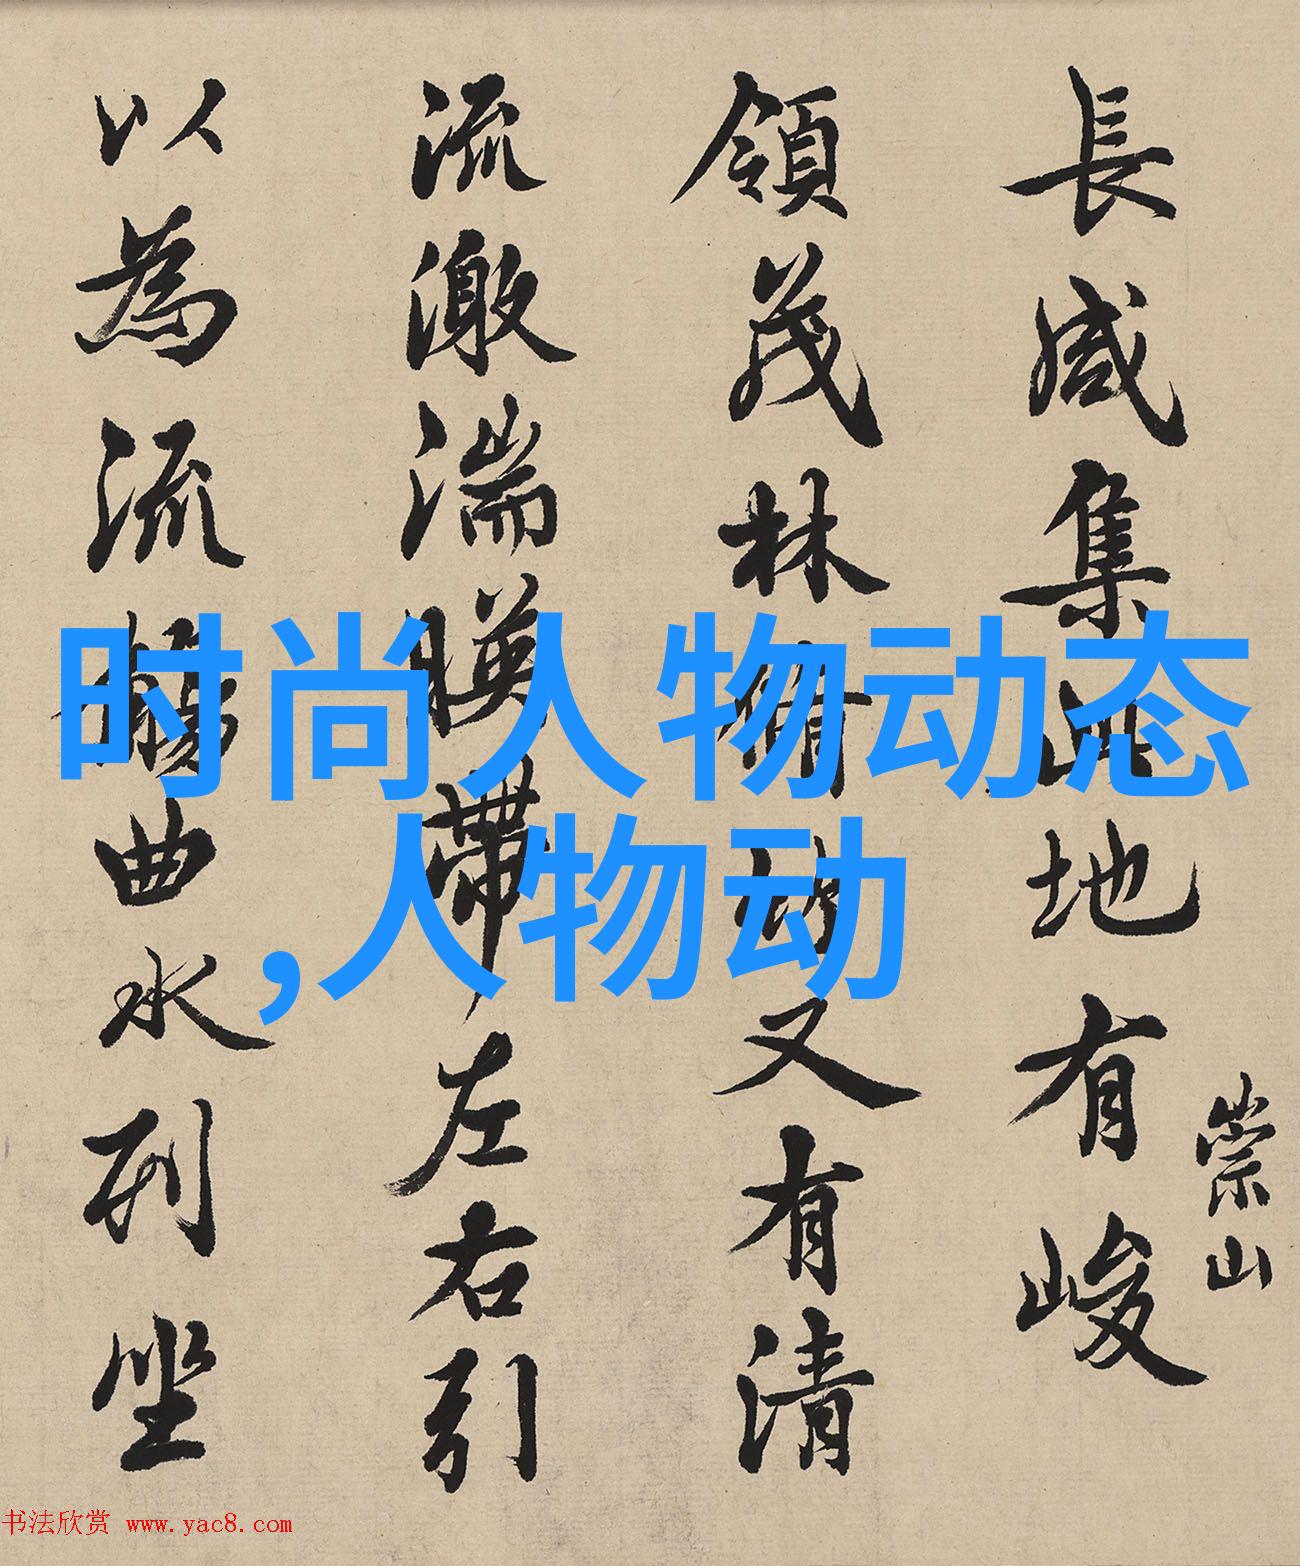 長咸集此地有峻
崇山
領茂林脩竹又有清
流激湍暎帶左右引
以為流觴曲水列坐
时尚人物动态
,人物动
书法欣赏 www.yac8.com